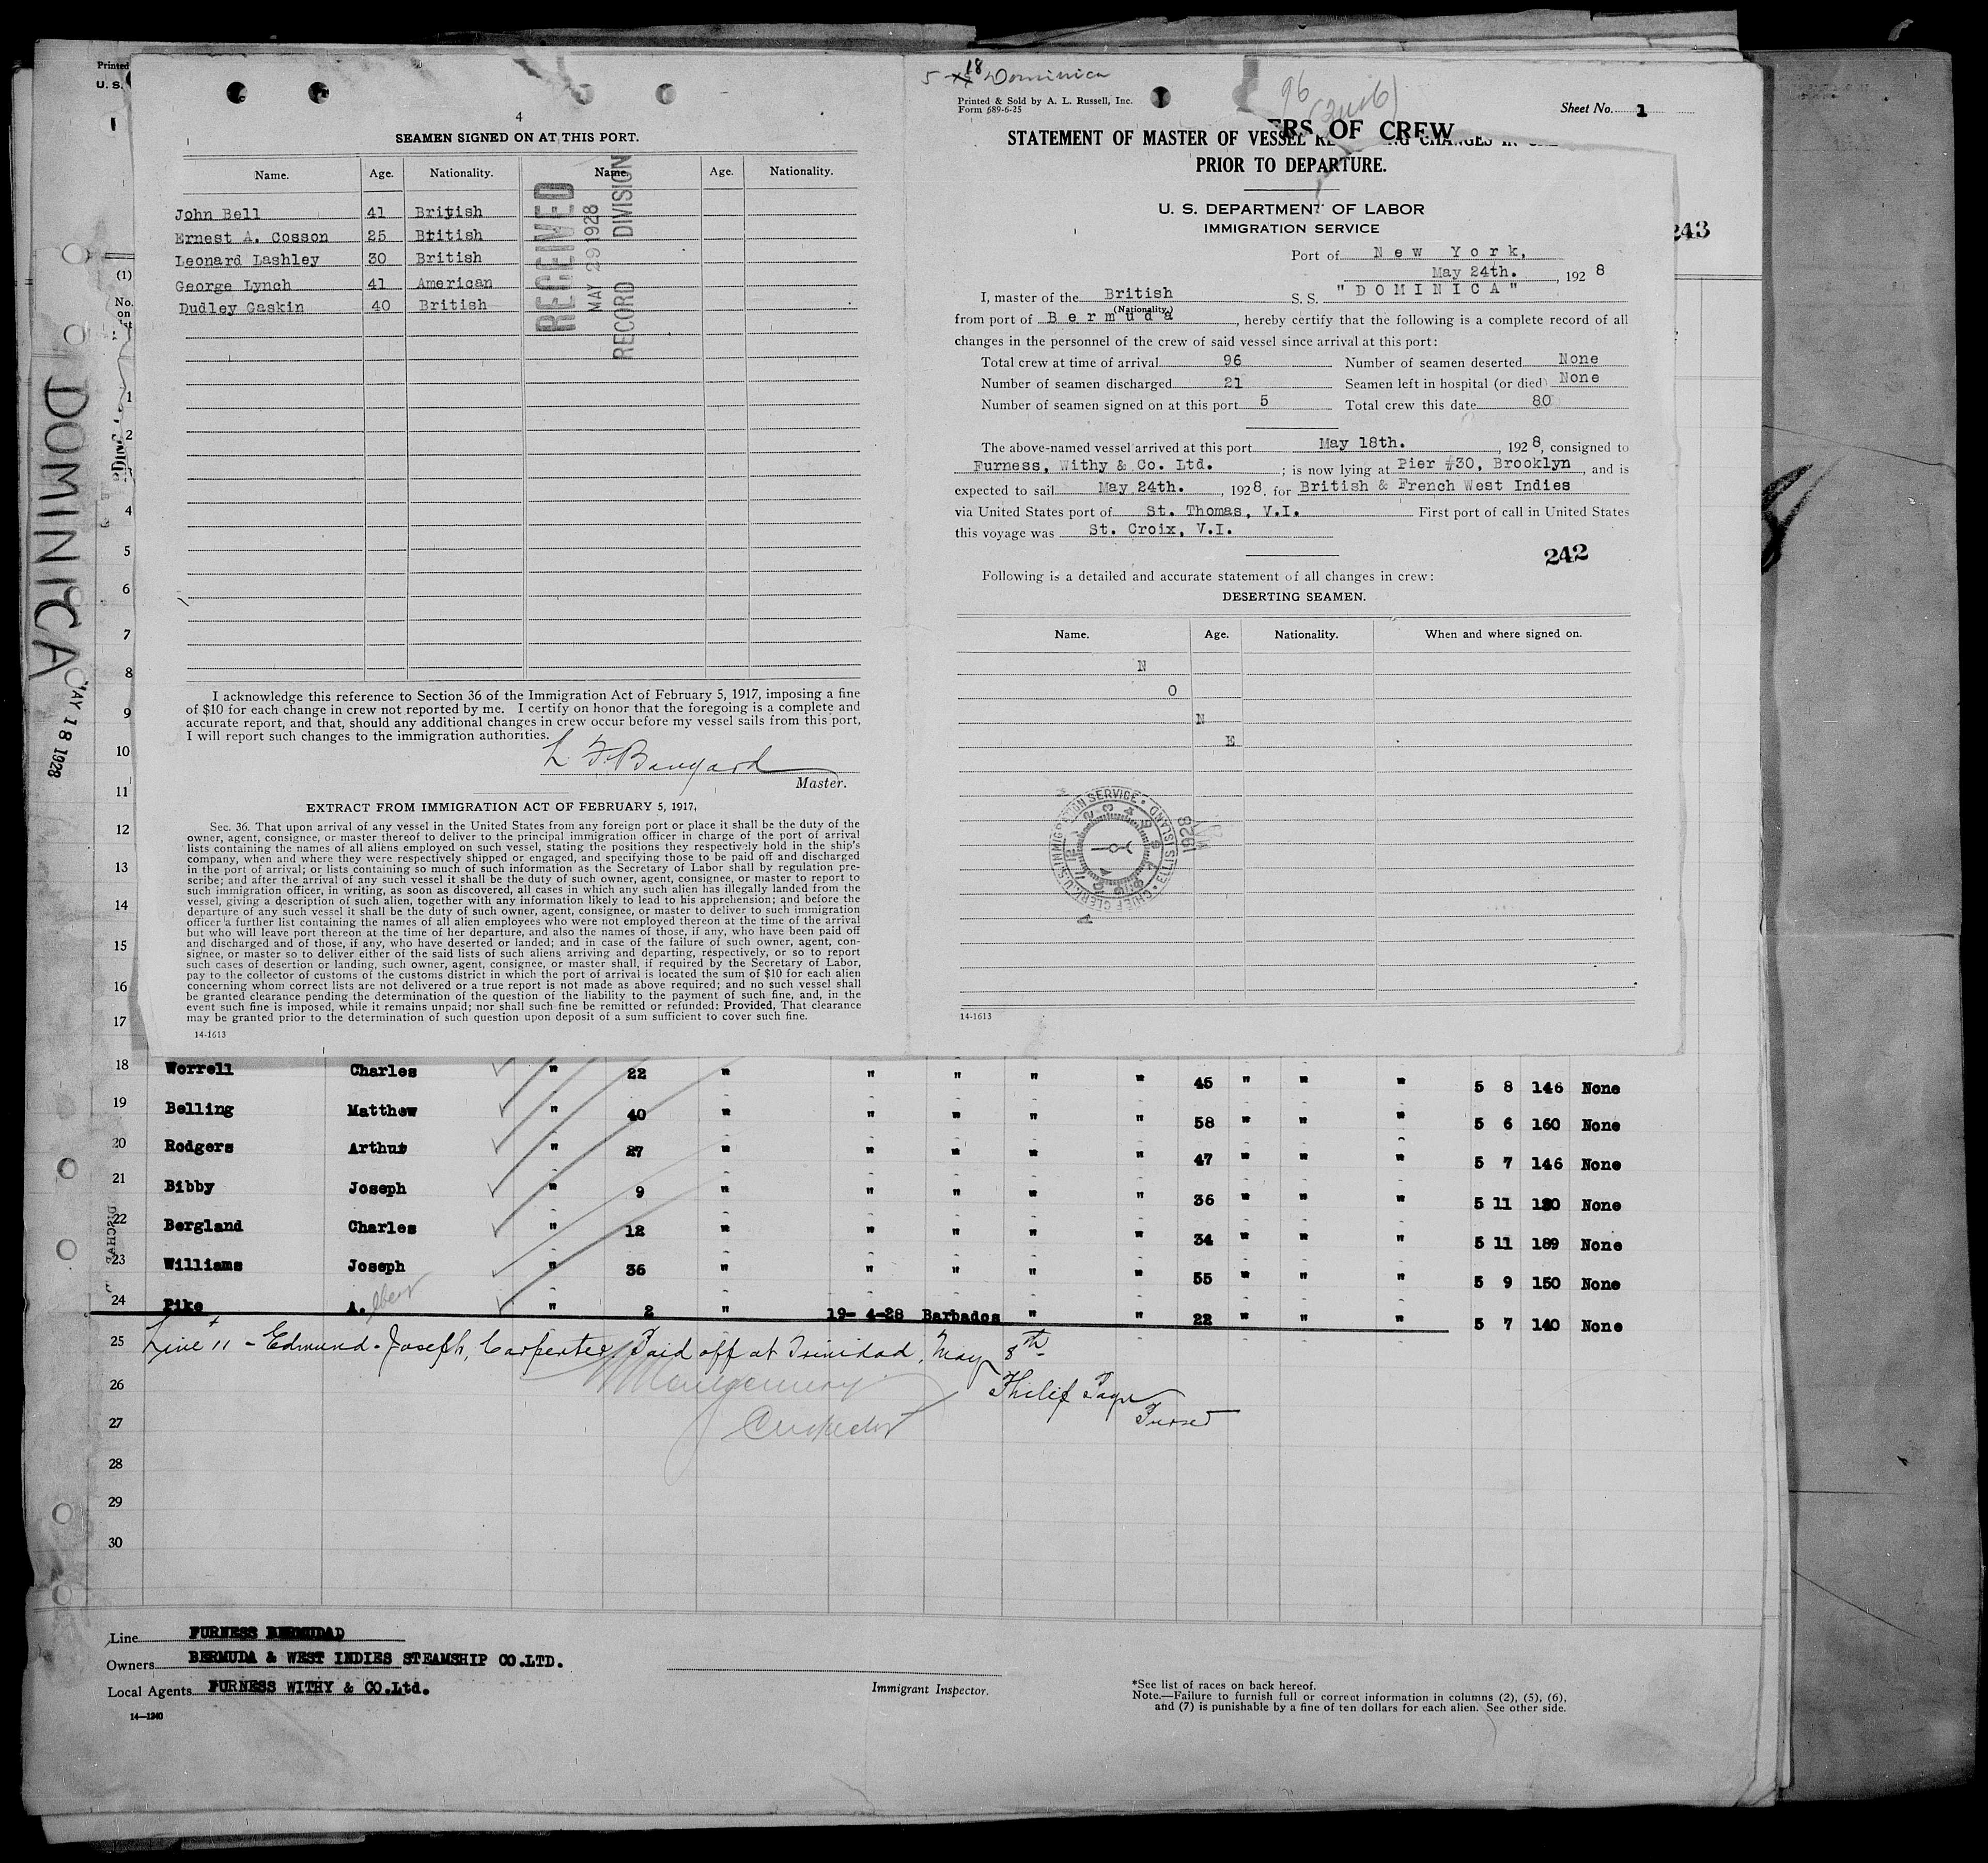 Printed
U. S.
4
SEAMEN SIGNED ON AT THIS PORT.
Name. Age. Nationality. Name. Age. Nationality.
John Bell 41 British
Ernest A. Cosson 25 British
Leonard Lashley 30 British
George Lynch 41 American
Dudley Gaskin 40 British
RECEIVED
MAY 29 1928
RECORD DIVISION
I acknowledge this reference to Section 36 of the Immigration Act of February 5, 1917, imposing a fine
of $10 for each change in crew not reported by me. I certify on honor that the foregoing is a complete and
accurate report, and that, should any additional changes in crew occur before my vessel sails from this port,
I will report such changes to the immigration authorities.
Master.
EXTRACT FROM IMMIGRATION ACT OF FEBRUARY 5, 1917.
Sec. 36. That upon arrival of any vessel in the United States from any foreign port or place it shall be the duty of the
owner, agent, consignee, or master thereof to deliver to the principal immigration officer in charge of the port of arrival
lists containing the names of all aliens employed on such vessel, stating the positions they respectively hold in the ship's
company, when and where they were respectively shipped or engaged, and specifying those to be paid off and discharged
in the port of arrival; or lists containing so much of such information as the Secretary of Labor shall by regulation pre-
scribe; and after the arrival of any such vessel it shall be the duty of such owner, agent, consignee, or master to report to
such immigration officer, in writing, as soon as discovered, all cases in which any such alien has illegally landed from the
vessel, giving a description of such alien, together with any information likely to lead to his apprehension; and before the
departure of any such vessel it shall be the duty of such owner, agent, consignee, or master to deliver to such immigration
officer a further list containing the names of all alien employees who were not employed thereon at the time of the arrival
but who will leave port thereon at the time of her departure, and also the names of those, if any, who have been paid off
and discharged and of those, if any, who have deserted or landed; and in case of the failure of such owner, agent, con-
signee, or master so to deliver either of the said lists of such aliens arriving and departing, respectively, or so to report
such cases of desertion or landing, such owner, agent, consignee, or master shall, if required by the Secretary of Labor,
pay to the collector of customs of the customs district in which the port of arrival is located the sum of $10 for each alien
concerning whom correct lists are not delivered or a true report is not made as above required; and no such vessel shall
be granted clearance pending the determination of the question of the liability to the payment of such fine, and, in the
event such fine is imposed, while it remains unpaid; nor shall such fine be remitted or refunded: Provided, That clearance
may be granted prior to the determination of such question upon deposit of a sum sufficient to cover such fine.
14-1613
5 18 Dominica
96
Printed & Sold by A. L. Russell, Inc.
Form 689-6-25
Sheet No. 1
ERS OF CREW
STATEMENT OF MASTER OF VESSEL RE NG CHANGES IN
PRIOR TO DEPARTURE.
U. S. DEPARTMENT OF LABOR
IMMIGRATION SERVICE
243
Port of New York,
May 24th., 1928
I, master of the British S. S. "DOMINICA"
(Nationality)
from port of Bermuda, hereby certify that the following is a complete record of all
changes in the personnel of the crew of said vessel since arrival at this port:
Total crew at time of arrival 96 Number of seamen deserted None
Number of seamen discharged 21 Seamen left in hospital (or died) None
Number of seamen signed on at this port 5 Total crew this date 80
The above-named vessel arrived at this port May 18th., 1928, consigned to
Furness, Withy & Co. Ltd.; is now lying at Pier #30, Brooklyn, and is
expected to sail May 24th., 1928, for British & French West Indies
via United States port of St. Thomas, V.I. First port of call in United States
this voyage was St. Croix, V.I.
242
Following is a detailed and accurate statement of all changes in crew:
DESERTING SEAMEN.
Name. Age. Nationality. When and where signed on.
N
O
N
E
CHIEF CLERK, U.S. IMMIGRATION SERVICE • ELLIS ISLAND
1928
14-1613
DOMINICA
MAY 18 1928
(1)
No.
on
1
2
3
4
5
6
7
8
9
10
11
12
13
14
15
16
17
18 Worrell Charles " 22 " " " " " 45 " " " 5 8 146 None
19 Belling Matthew " 40 " " " " " 58 " " " 5 6 160 None
20 Rodgers Arthur " 27 " " " " " 47 " " " 5 7 146 None
21 Bibby Joseph " 9 " " " " " 36 " " " 5 11 180 None
22 Bergland Charles " 12 " " " " " 34 " " " 5 11 189 None
23 Williams Joseph " 36 " " " " " 55 " " " 5 9 150 None
24 Pike A. " 2 " 19- 4-28 Barbados " " 22 " " " 5 7 140 None
25 Line 11 - Edmund - Joseph, Carpenter, Paid off at Trinidad, May 8th
26 Montgomery Philip
27 Inspector Purser
28
29
30
Line FURNESS BERMUDAD
Owners BERMUDA & WEST INDIES STEAMSHIP CO.LTD.
Local Agents FURNESS WITHY & CO.Ltd.
14—1240
Immigrant Inspector.
*See list of races on back hereof.
Note.—Failure to furnish full or correct information in columns (2), (5), (6),
and (7) is punishable by a fine of ten dollars for each alien. See other side.